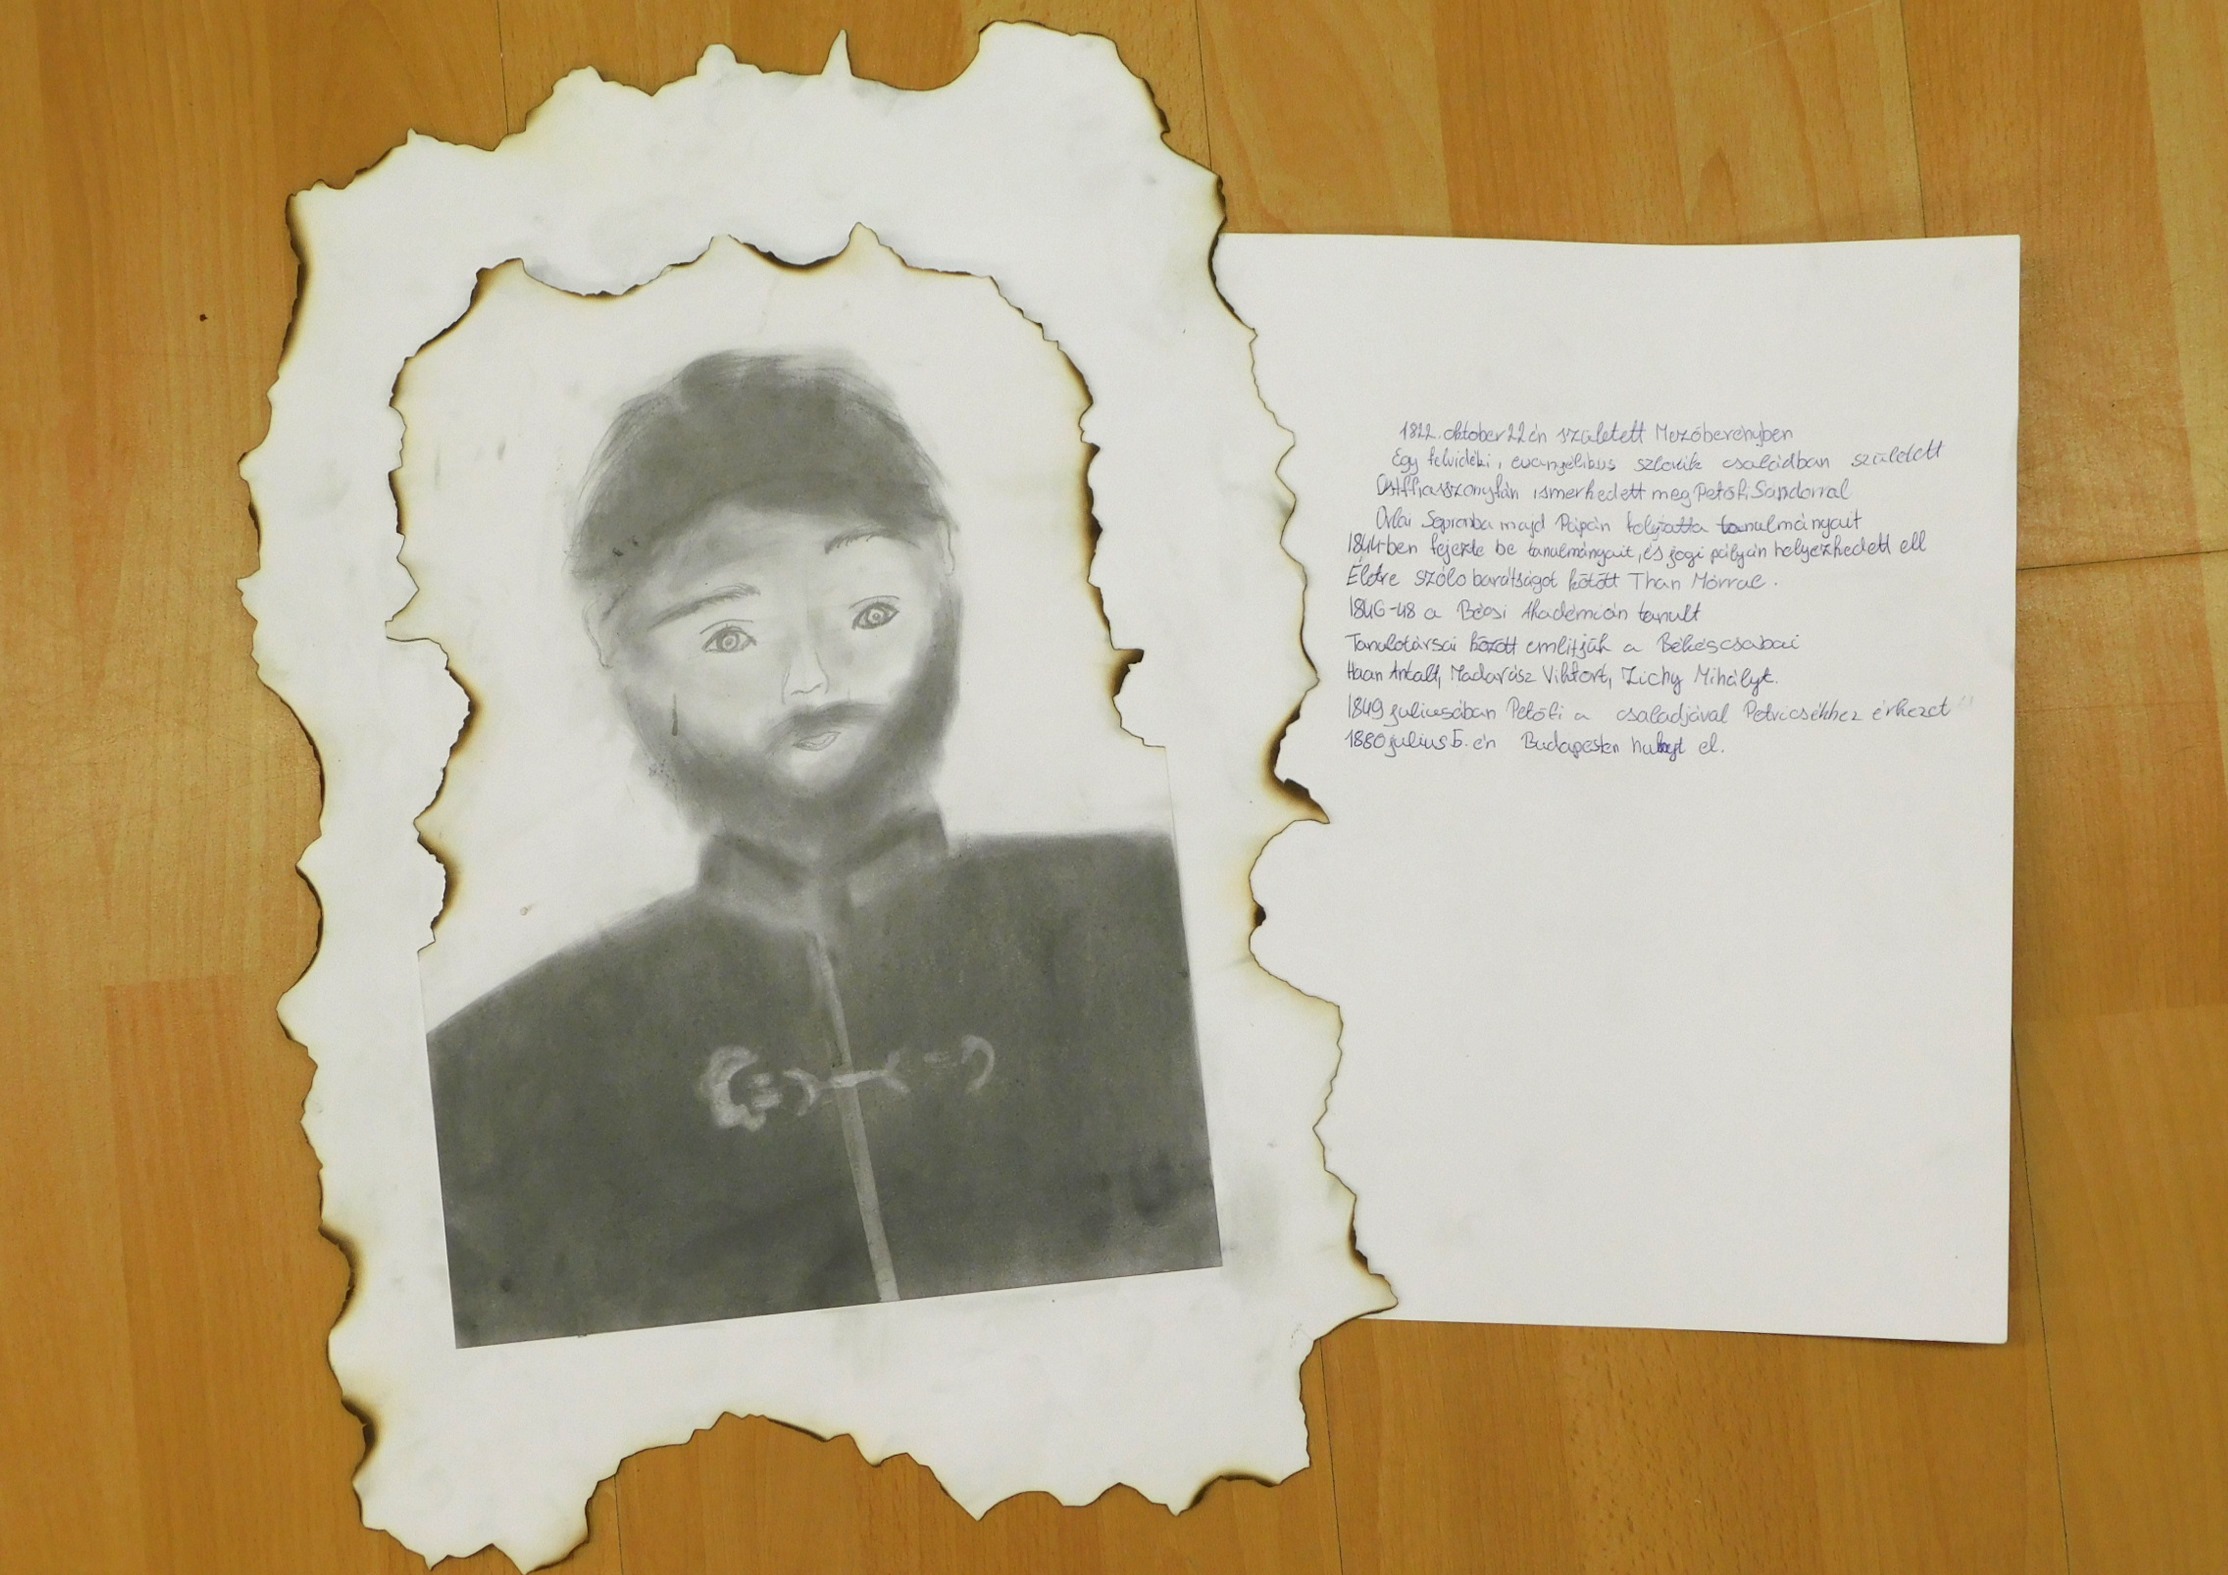 1822. oktober 22 én született Mezőberényben
Egy felvidéki, evangélikus szlovák családban született
Ostffiasszonyfán ismerkedett meg Petőfi Sándorral
Orlai Sopronba majd Pápán folytatta tanulmányait
1844-ben fejezte be tanulmányait, és jogi pályán helyezkedett ell
Életre szóló barátságot kötött Than Mórral.
1846-48 a Bécsi Akadémián tanult
Tanulotársai között emlitjük a Békéscsabai
Haan Antalt, Madarász Viktort, Zichy Mihályt.
1849 juliusában Petőfi a családjával Petricsékhez érkezet
1880 július 5. én Budapesten hunyt el.